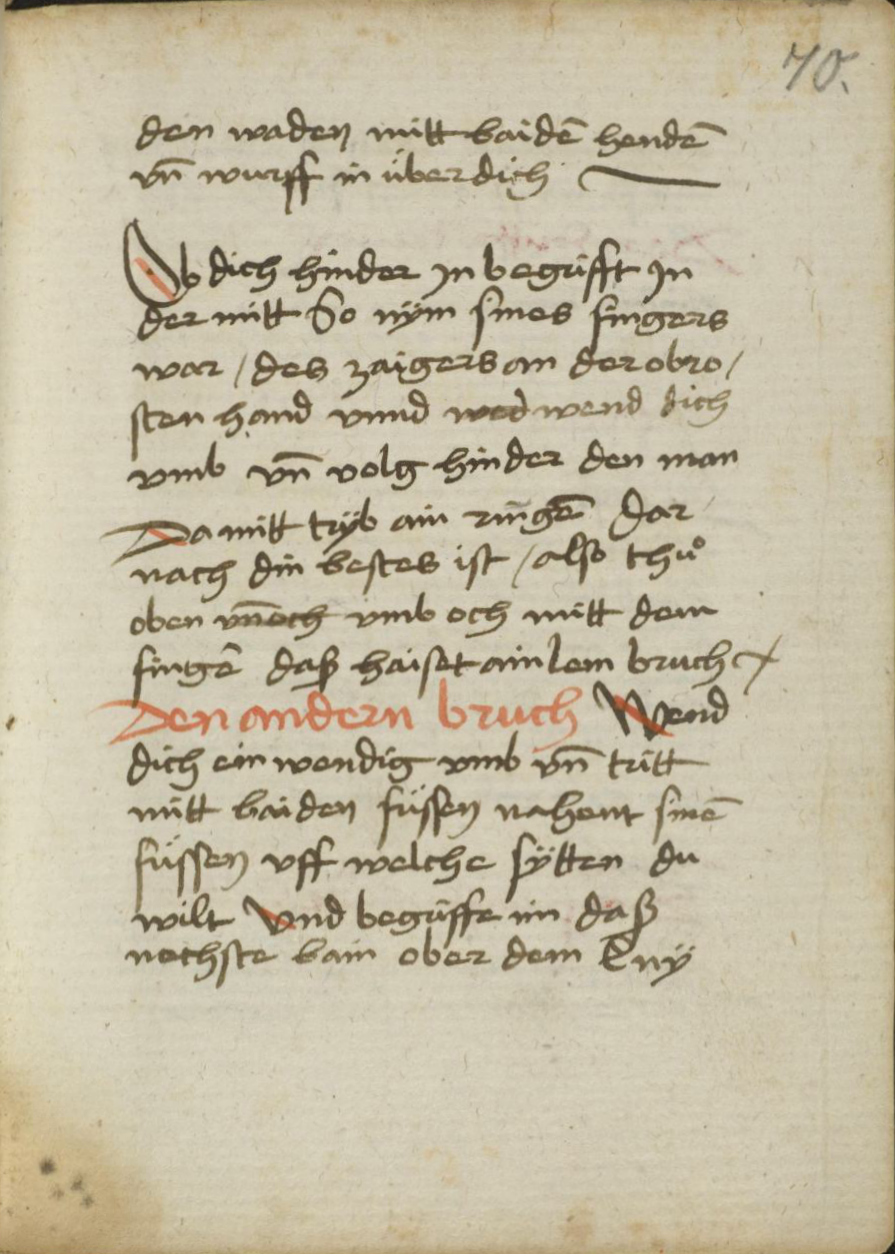 70.
den waden mitt baidē hendē
vn̄ wurff in über dich
Ob dich hinder in begrifft In
der mitt So nÿm sines fingers
war / des zaigers an der obro /
sten hand vnnd wed wend dich
vmb vn̄ volg hinder den man
Da mitt trÿb ain ringē dar
nach din bestes ist / also thuͦ
oben vn̄ och vmb och mitt dem
fingē daß haiset ain lem bruch
Den andern bruch Wend
dich ein wendig vmb vn̄ tritt
mitt baiden füssen nahent sinē
füssen vff welche sÿtten du
wilt Vnd begriffe im daß
nechste bain ober dem knÿ